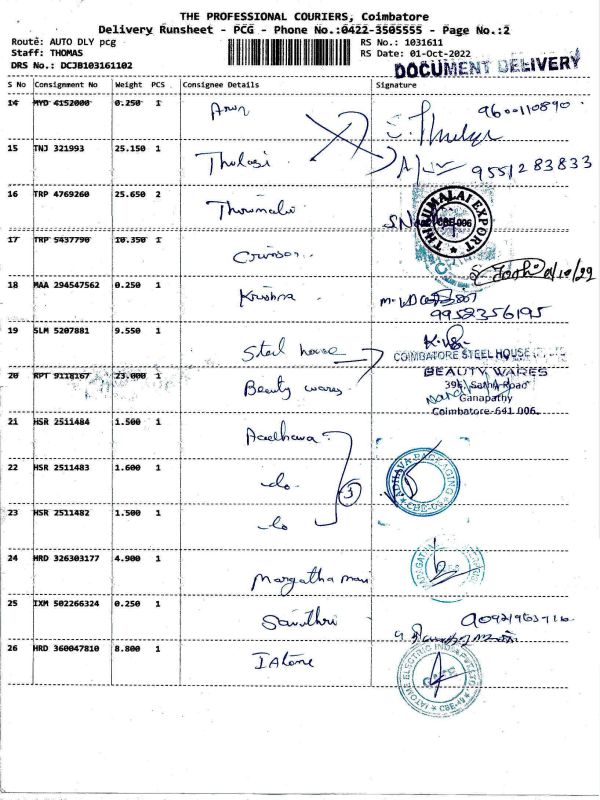 THE PROFESSIONAL COURIERS, Coimbatore
Delivery Runsheet - PCG - Phone No.:0422-3505555 - Page No.:2
Route: AUTO DLY pcg RS No.: 1031611
Staff: THOMAS RS Date: 01-Oct-2022
DRS No.: DCJB103161102 DOCUMENT DELIVERY
S No Consignment No Weight PCS . Consignee Details Signature
14 MYD 4152000 0.250 1 Arun 9600110890
15 TNJ 321993 25.150 1 Thulasi 9551283833
16 TRP 4769260 25.650 2 Thirumalai THIRUMALAI EXPORT CBE-006
17 TRP 5437790 10.350 1 Crimson
18 MAA 294547562 0.250 1 Krishna 9952356195
19 SLM 5207881 9.550 1 Steel house COIMBATORE STEEL HOUSE
20 RPT 9118167 23.000 1 Beauty wares BEAUTY WARES
Sathy Road
Ganapathy
Coimbatore-641 006.
21 HSR 2511484 1.500 1 Aadhava
22 HSR 2511483 1.600 1 -do- ADHAVA PACKAGING
23 HSR 2511482 1.500 1 -do 3
24 HRD 326303177 4.900 1 Margatha mani
25 IXM 502266324 0.250 1 Savithri
26 HRD 360047810 8.800 1 IAtome IATOME ELECTRIC